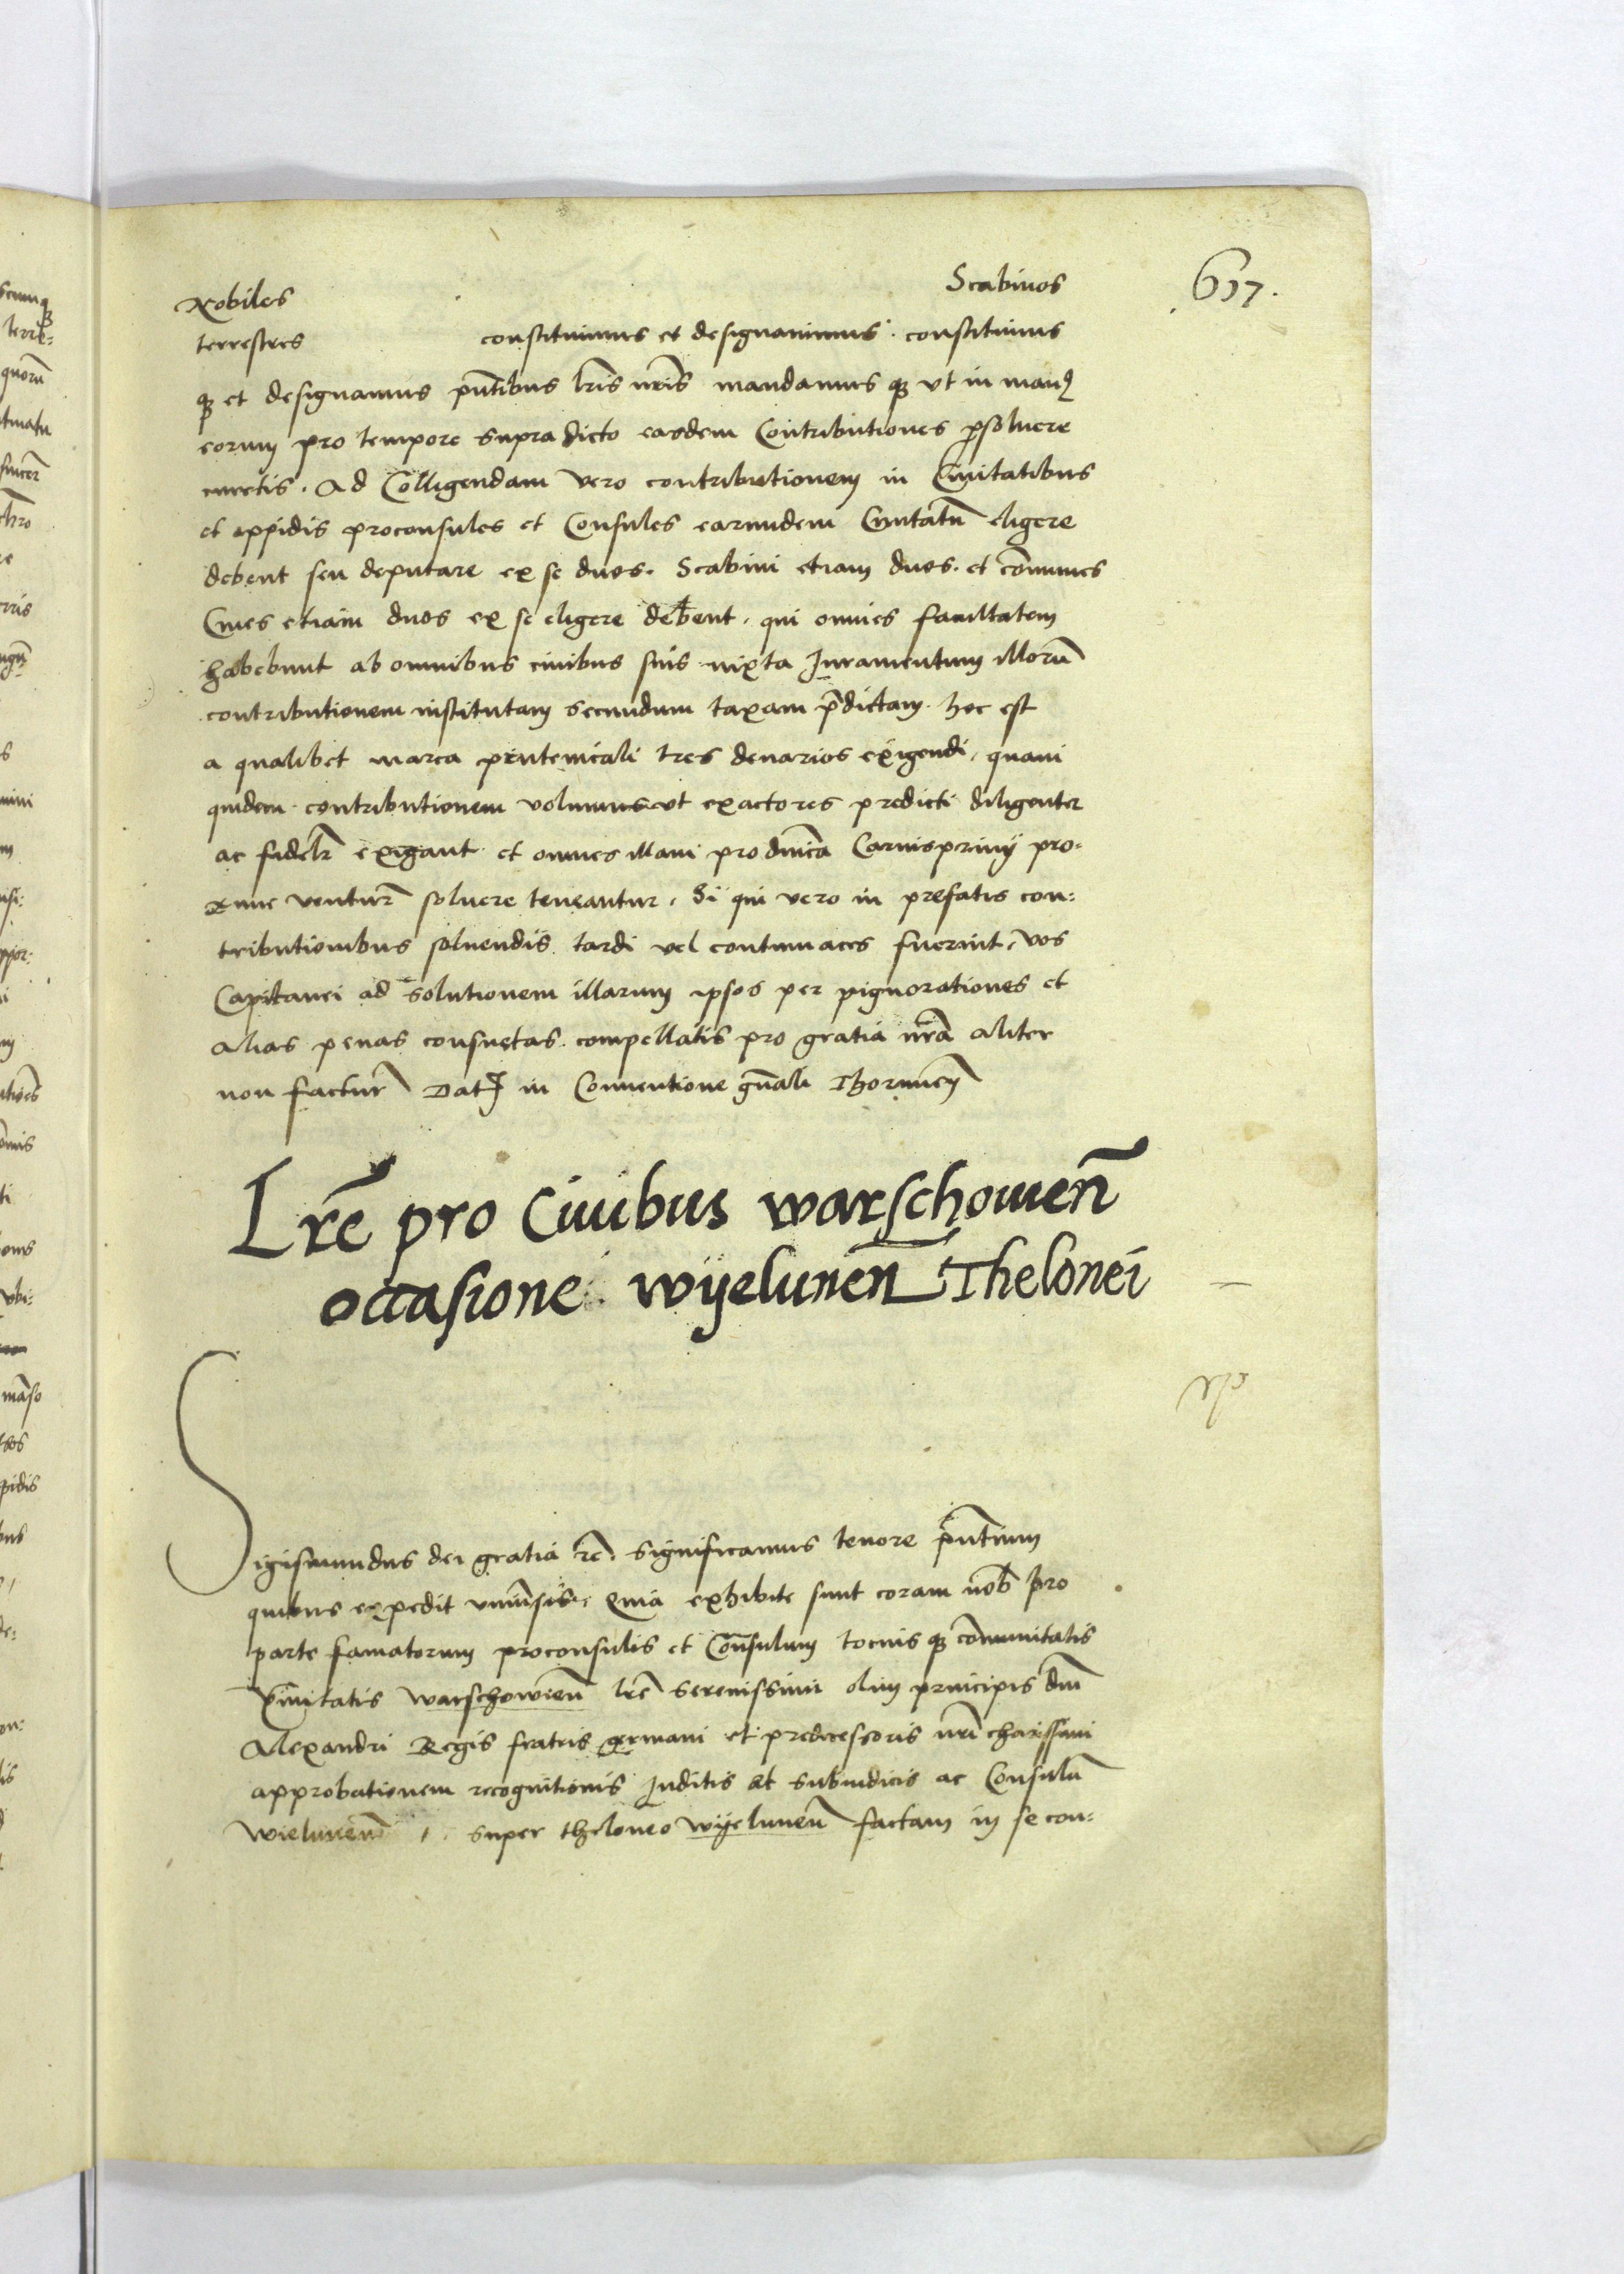 637.
Nobiles Scabinos
terrestres constituimus et designauimus. constituimus
q3 et designamus pñtibus lris nris mandamus q3 vt in manus
eorum pro tempore supra dicto easdem Contributiones psoluere
curetis. Ad Colligendam vero contributionem in Ciuitatibus
et oppidis proconsules et Consules earundem Ciuitatũ eligere
debent seu deputare ex se duos. Scabini etiam duos. et cõmunes
Ciues etiam duos ex se eligere debent. qui omnes facultatem
habebunt ab omnibus ciuibus suis iuxta Juramentum illorũ
contributionem institutam secundum taxam p̃dictam. hoc est
a qualibet marca prutenicali tres denarios exigendi, quam
quidem contributionem volumus vt exactores predicti diligenter
ac fidelr exigant et omnes illam pro dnica Carnispriuij pro-
xime ventur̃ soluere teneantur. Si qui vero in prefatis con:
tributionibus soluendis tardi vel contumaces fuerint, vos
Capitanei ad solutionem illarum ipsos per pignorationes et
alias penas consuetas compellatis pro gratia nrã aliter
non factur̃ Dat in Conuentione gñali Thorunen̄
Lrẽ pro Ciuibus warschouieñ
occasione wyeluneñ Thelonei
Sigismundus dei gratia rẽ. Significamus tenore p̃ntium
quibus expedit vniuersis. Quia exhibite sunt coram nob̃ pro
parte famatorum proconsulis et Cõnsulum tocius q3 cõmunitatis
Ciuitatis warschowieñ lrẽ serenissimi olim principis dñi
Alexandri Regis fratris germani et predecessoris nri charissimi
approbationem recognitionis Juditis et subiudicis ac Consulũ
wieluneñ super theloneo wyeluneñ factam in se con: